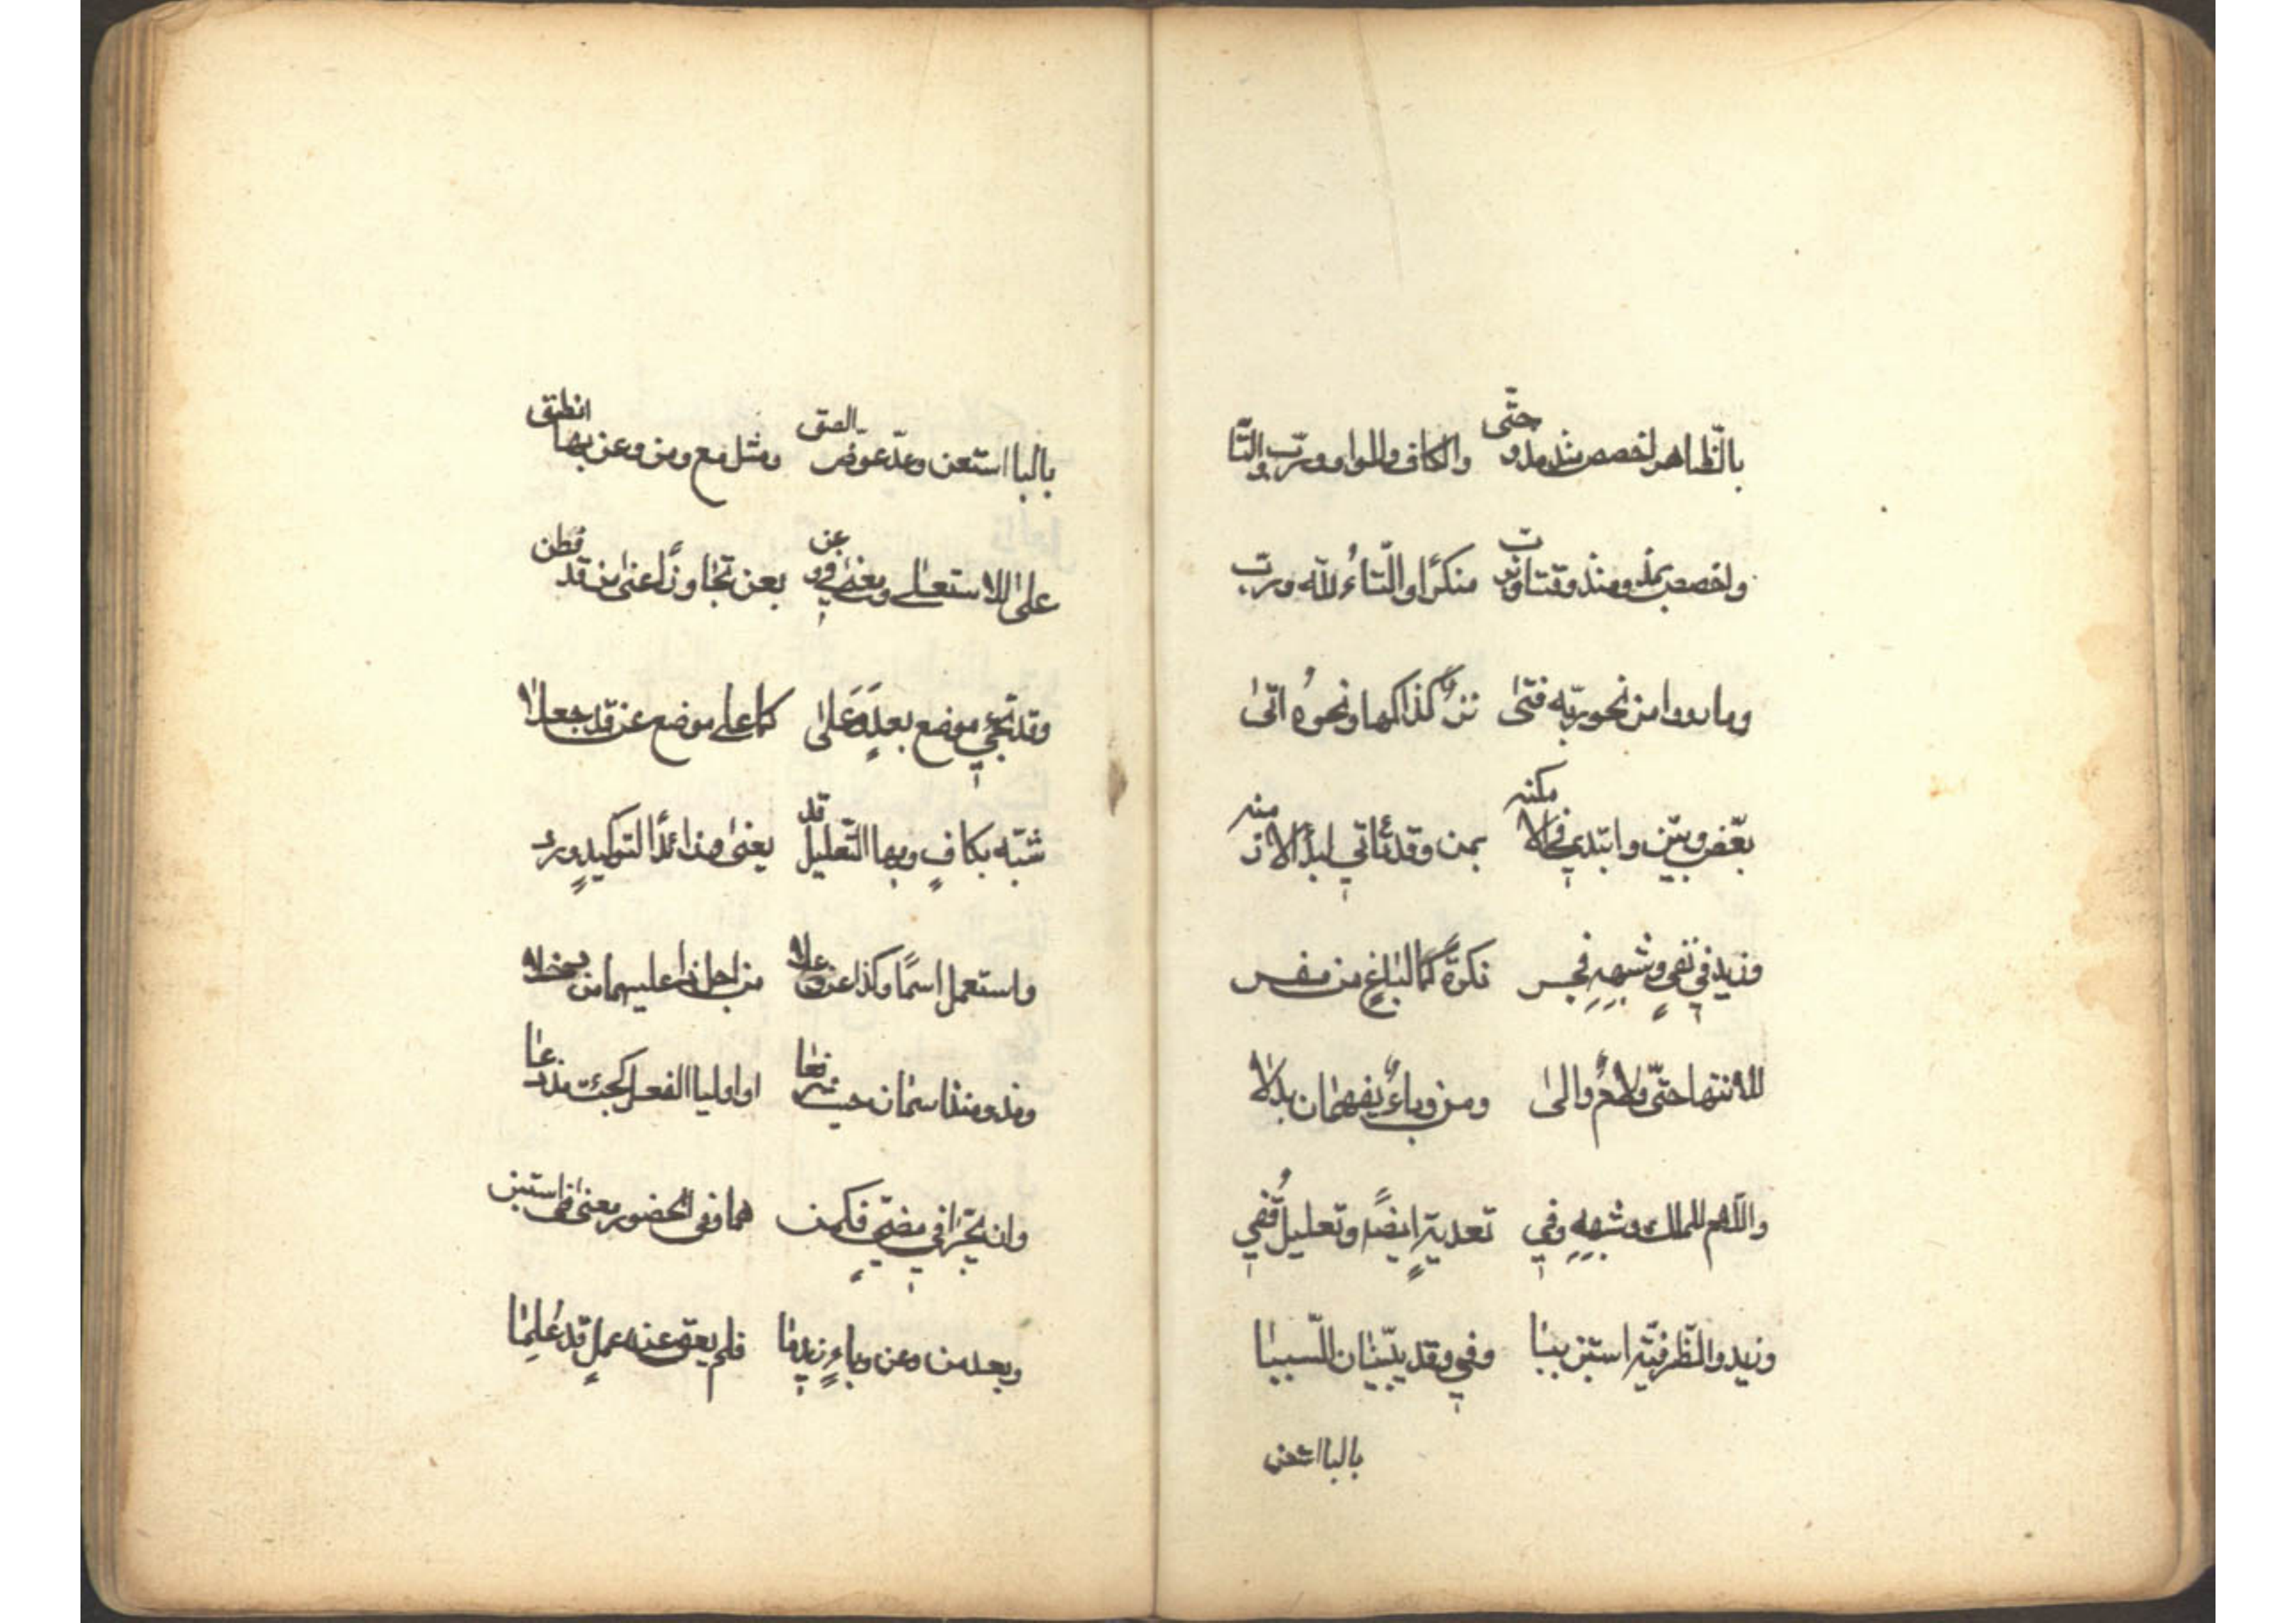 بالظاهر اخصص منذ مذ وحتى والكاف والواو ورب والتا
واخصص بمذ ومنذ وقتا وبرب منكرا والتاء لله ورب
وما رووا من نحو ربه فتى نزر كذا كها ونحوه اتى
بعض وبين وابتدي في الامكنه بمن وقد تاتي لبدء الازمنه
وزيد في نفي وشبهه فجر نكرة كما لباغ من مفر
للانتها حتى ولام والى ومن وباء يفهمان بدلا
واللام للملك وشبهه وفي تعدية ايضا وتعليل قفي
وزيد والظرفية استبن ببا وفي وقد يبينان السببا
بالبا استعن
بالبا استعن وعد عوض الصق ومثل مع ومن وعن بها انطق
على للاستعلى ومعنى في وعن بعن تجاوزا عنى من قد فطن
وقد تجي موضع بعد وعلى كما على موضع عن قد جعلا
شبه بكاف وبها التعليل قد يعنى وزائدا لتوكيد ورد
واستعمل اسما وكذا عن وعلى من اجل ذا عليهما من دخلا
ومذ ومنذ اسمان حيث رفعا او اوليا الفعل كجئت مذ دعا
وان يجرا في مضي فكمن هما وفى الحضور معنى فى استبن
وبعد من وعن وباء زيد ما فلم يعق عنه عمل قد علما